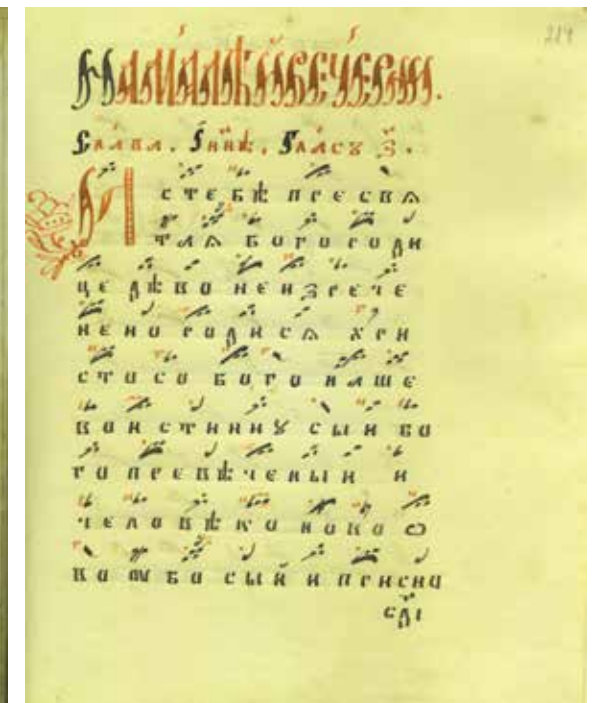 На малѣй вечерни.
Славл. І҆ннѣ. Гласꙋ з҃.
Ис тебѣ пресвѧ
таѧ богороди
це дѣво неизрече
нено родисѧ хри
стосо бого наше
воистиннꙋ сыи бо
го превѣченыи и
человѣко ново ѡ
во ѿбо сый и присно